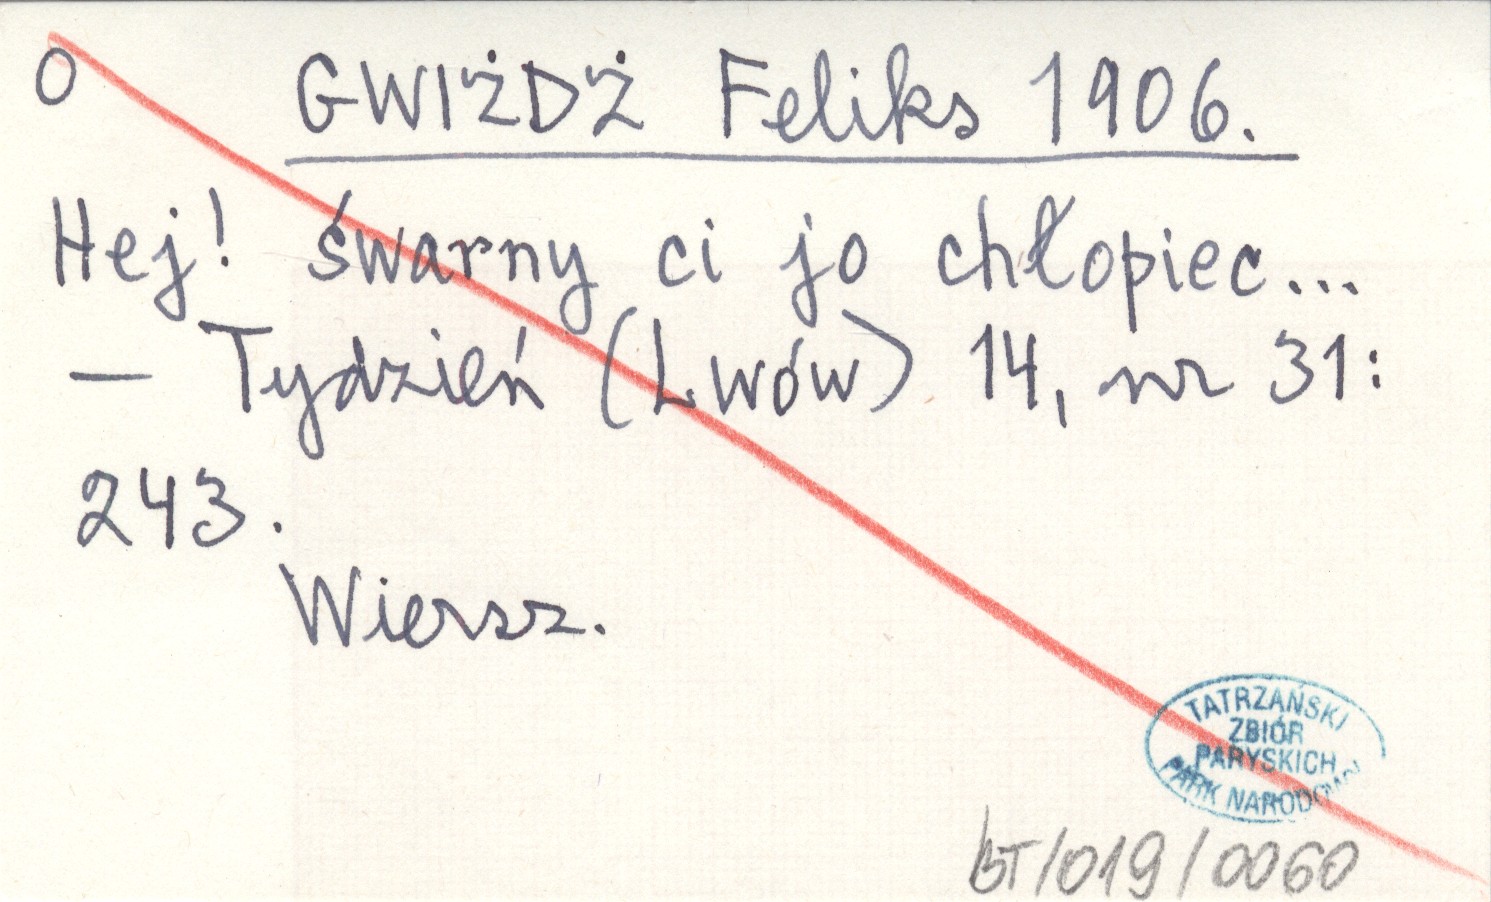 O GWIŻDŻ Feliks 1906.
Hej! śwarny ci jo chłopiec...
— Tydzień (Lwów) 14, nr 31:
243.
Wiersz.
TATRZAŃSKI
ZBIÓR
PARYSKICH
PARK NARODOWY
BT/019/0060